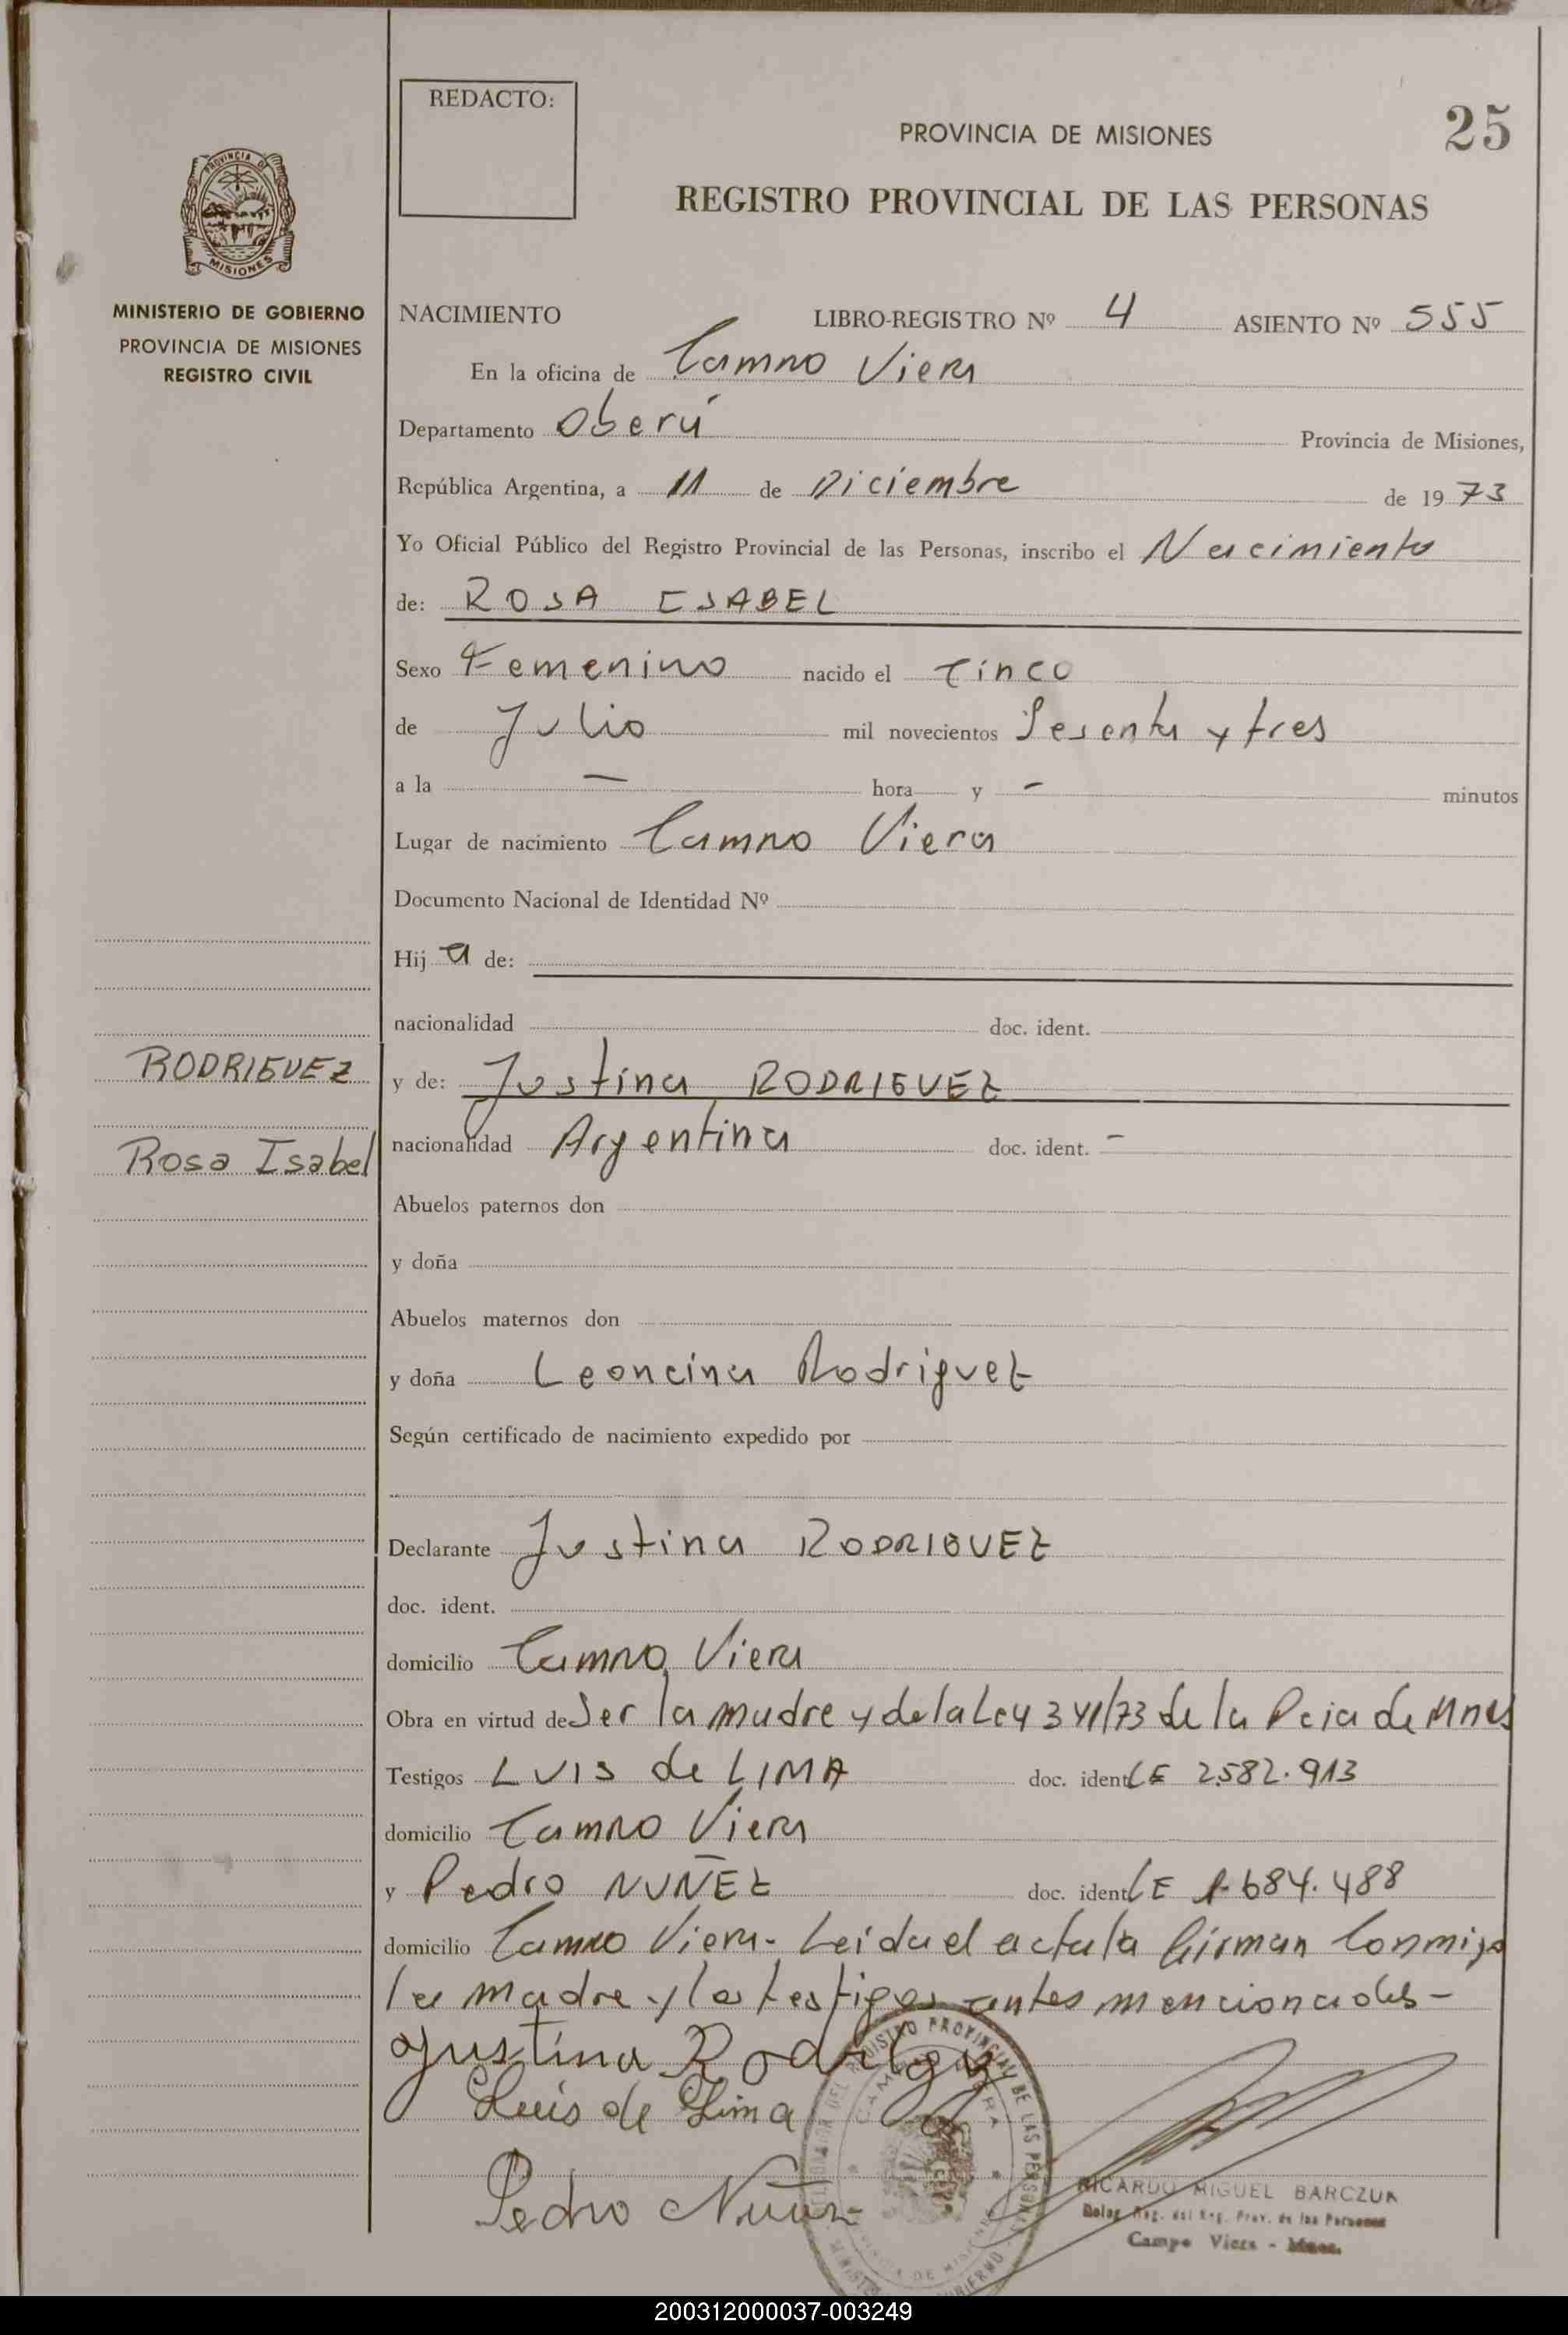 REDACTO:
PROVINCIA DE MISIONES
25
REGISTRO PROVINCIAL DE LAS PERSONAS
PROVINCIA DE
MISIONES
MINISTERIO DE GOBIERNO
PROVINCIA DE MISIONES
REGISTRO CIVIL
NACIMIENTO LIBRO-REGISTRO Nº 4 ASIENTO Nº 555
En la oficina de Campo Viera
Departamento Oberá Provincia de Misiones,
República Argentina, a 11 de Diciembre de 1973
Yo Oficial Público del Registro Provincial de las Personas, inscribo el Nacimiento
de: ROSA ISABEL
Sexo Femenino nacido el Cinco
de Julio mil novecientos Sesenta y tres
a la — hora y - minutos
Lugar de nacimiento Campo Viera
Documento Nacional de Identidad Nº
Hij a de:
nacionalidad doc. ident.
RODRIGUEZ
y de: Justina RODRIGUEZ
Rosa Isabel
nacionalidad Argentina doc. ident. -
Abuelos paternos don
y doña
Abuelos maternos don
y doña Leoncina Rodriguez
Según certificado de nacimiento expedido por
Declarante Justina RODRIGUEZ
doc. ident.
domicilio Campo Viera
Obra en virtud de Ser la madre y de la Ley 341/73 de la Pcia de Mnes
Testigos LUIS de LIMA doc. ident LE 2582.913
domicilio Campo Viera
y Pedro NUÑEZ doc. ident LE 1.684.488
domicilio Campo Viera- Leida el acta la firman Conmigo
la madre y los testigos antes mencionados-
Justina Rodriguez
Luis de Lima
Pedro Nuñez
DEL REGISTRO PROVINCIAL DE LAS PERSONAS
CAMPO VIERA
RICARDO MIGUEL BARCZUK
Deleg. Reg. del Reg. Prov. de las Personas
Campo Viera - Mnes.
200312000037-003249